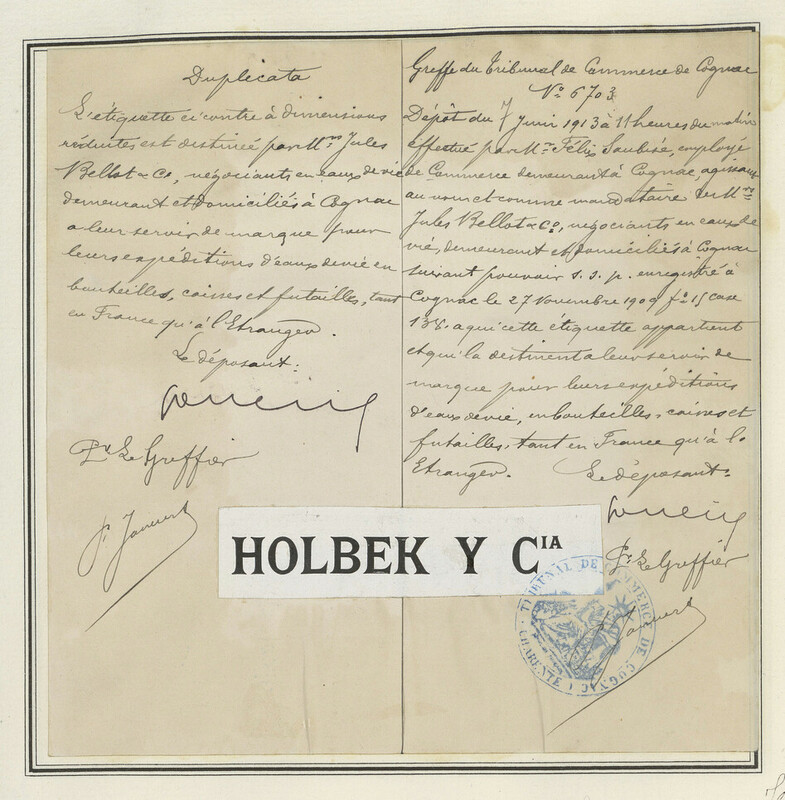 Duplicata
L'étiquette ci contre à dimensions
réduites est destinée par Mrs Jules
Bellot & Co, négociants en eaux de vie
demeurant et domiciliés à Cognac
a leur servir de marque pour
leurs expéditions d'eaux de vie en
bouteilles, caisses et futailles, tant
en France qu'à l'Etranger.
Le déposant:
Pr Le Greffier
Greffe du Tribunal de Commerce de Cognac
No 6703
Dépôt du 7 Juin 1913 à 11 heures du matin
effectué par Mr Félix Saubise, employé
de Commerce demeurant à Cognac, agissant
au nom et comme mandataire de Mrs
Jules Bellot & Co, négociants en eaux de
vie, demeurant et domiciliés à Cognac
suivant pouvoir s. s. p. enregistré à
Cognac le 27 Novembre 1900 fo 15 case
138. a qui cette étiquette appartient
et qu'la destinent a leur servir de
marque pour leurs expéditions
d'eaux de vie, en bouteilles, caisses et
futailles, tant en France qu'à l'
Etranger. Le déposant:
Pr Le Greffier
HOLBEK Y CIA
TRIBUNAL DE COMMERCE DE COGNAC
CHARENTE